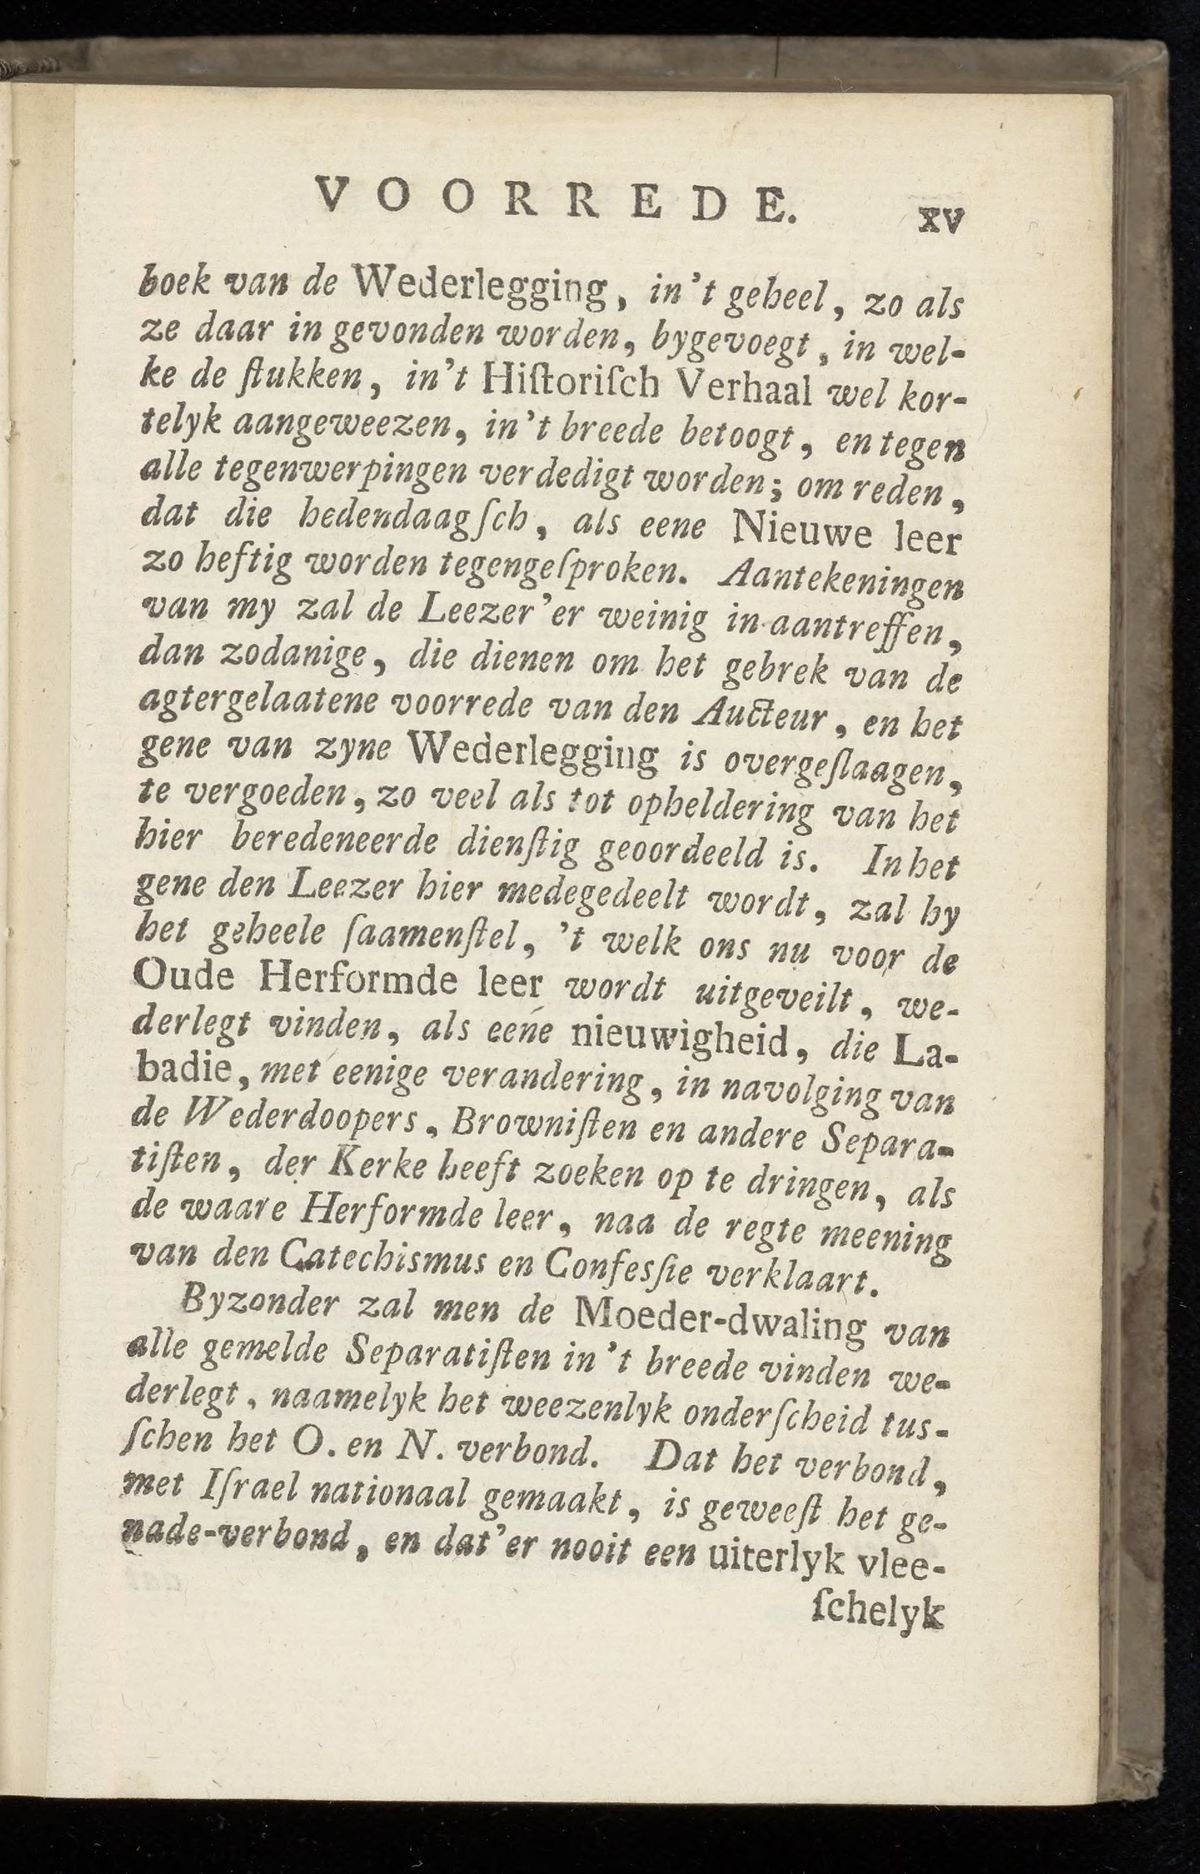 VOORREDE. XV
boek van de Wederlegging, in't geheel, zo als
ze daar in gevonden worden, bygevoegt, in wel-
ke de ſtukken, in't Hiſtoriſch Verhaal wel kor-
telyk aangeweezen, in't breede betoogt, en tegen
alle tegenwerpingen verdedigt worden; om reden,
dat die hedendaagſch, als eene Nieuwe leer
zo heftig worden tegengeſproken. Aantekeningen
van my zal de Leezer'er weinig in aantreffen,
dan zodanige, die dienen om het gebrek van de
agtergelaatene voorrede van den Aucteur, en het
gene van zyne Wederlegging is overgeſlaagen,
te vergoeden, zo veel als tot opheldering van het
hier beredeneerde dienſtig geoordeeld is. In het
gene den Leezer hier medegedeelt wordt, zal hy
het geheele ſaamenſtel, 't welk ons nu voor de
Oude Herformde leer wordt uitgeveilt, we-
derlegt vinden, als eene nieuwigheid, die La-
badie, met eenige verandering, in navolging van
de Wederdoopers, Browniſten en andere Separa-
tiſten, der Kerke heeft zoeken op te dringen, als
de waare Herformde leer, naa de regte meening
van den Catechismus en Confesſie verklaart.
Byzonder zal men de Moeder-dwaling van
alle gemelde Separatiſten in't breede vinden we-
derlegt, naamelyk het weezenlyk onderſcheid tus-
ſchen het O. en N. verbond. Dat het verbond,
met Iſrael nationaal gemaakt, is geweeſt het ge-
nade-verbond, en dat'er nooit een uiterlyk vlee-
ſchelyk